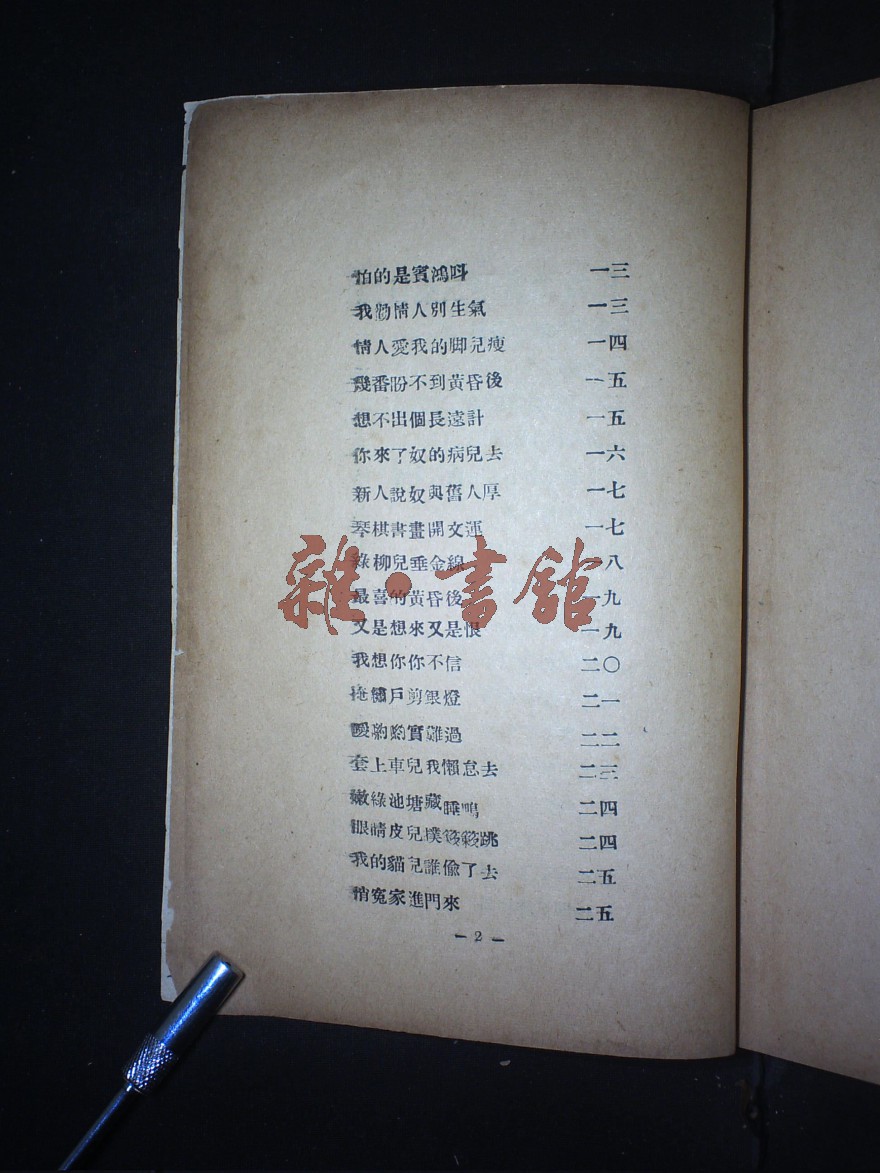 怕的是賓鴻呌 一三
我勸情人別生氣 一三
情人愛我的脚兒瘦 一四
幾番盼不到黃昏後 一五
想不出個長遠計 一五
你來了奴的病兒去 一六
新人說奴與舊人厚 一七
琴棋書畫開文運 一七
綠柳兒垂金線 一八
最喜的黃昏後 一九
又是想來又是恨 一九
我想你你不信 二〇
掩繡戶剪銀燈 二一
曖約約實難過 二二
套上車兒我懶怠去 二三
嫩綠池塘藏睡鴨 二四
眼睛皮兒撲簌簌跳 二四
我的貓兒誰偷了去 二五
俏冤家進門來 二五
— 2 —
雜·書館